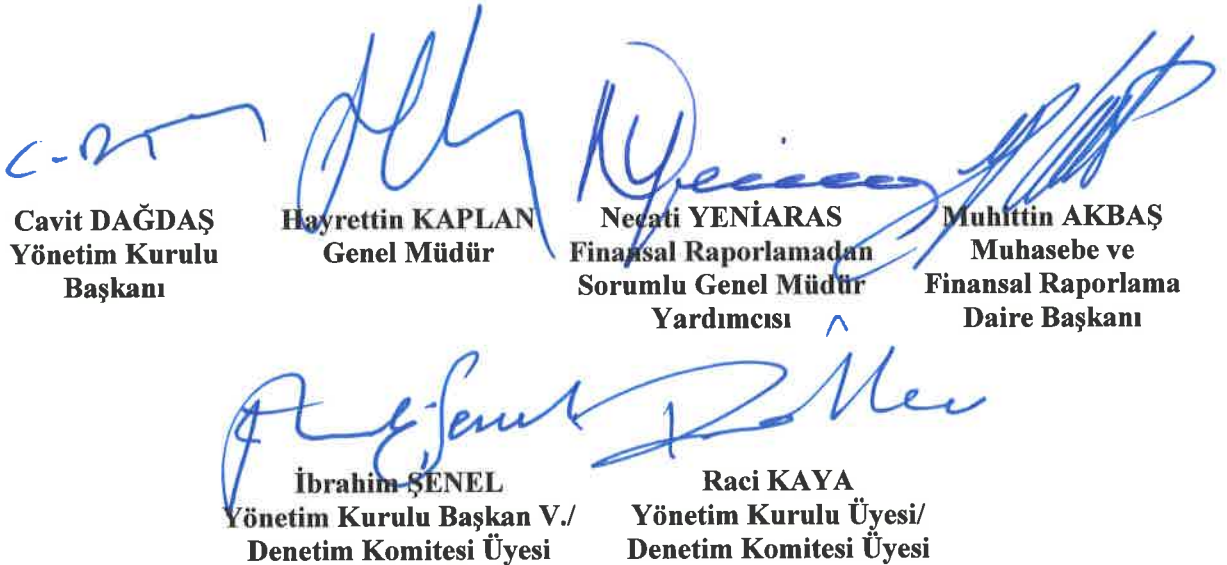 Cavit DAĞDAŞ
Yönetim Kurulu
Başkanı
Hayrettin KAPLAN
Genel Müdür
Necati YENİARAS
Finansal Raporlamadan
Sorumlu Genel Müdür
Yardımcısı
Muhittin AKBAŞ
Muhasebe ve
Finansal Raporlama
Daire Başkanı
İbrahim ŞENEL
Yönetim Kurulu Başkan V./
Denetim Komitesi Üyesi
Raci KAYA
Yönetim Kurulu Üyesi/
Denetim Komitesi Üyesi